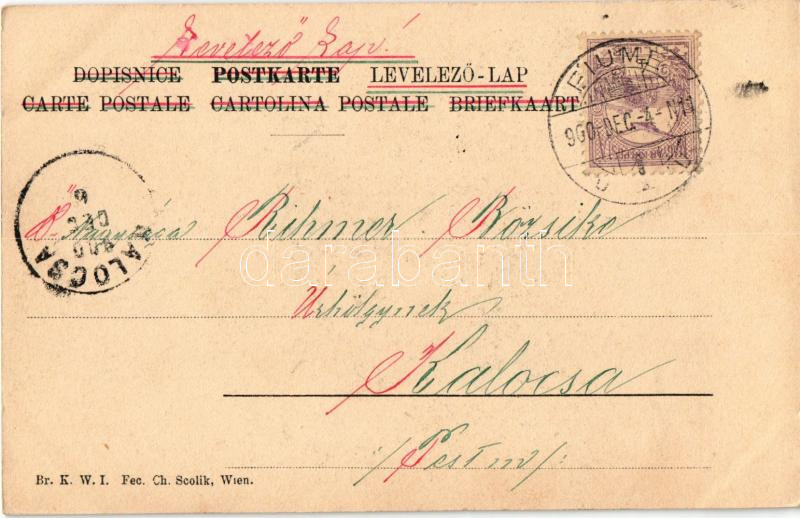 Levelező Lap!
DOPISNICE POSTKARTE LEVELEZŐ-LAP
CARTE POSTALE CARTOLINA POSTALE BRIEFKAART
FIUME
900-DEC.-4-
KALOCSA
900
DEC
6
Rihmer Bözsike
Úrhölgynek
Kalocsa
/:Pest m/:
Br. K. W. I. Fec. Ch. Scolik, Wien.
darabanth